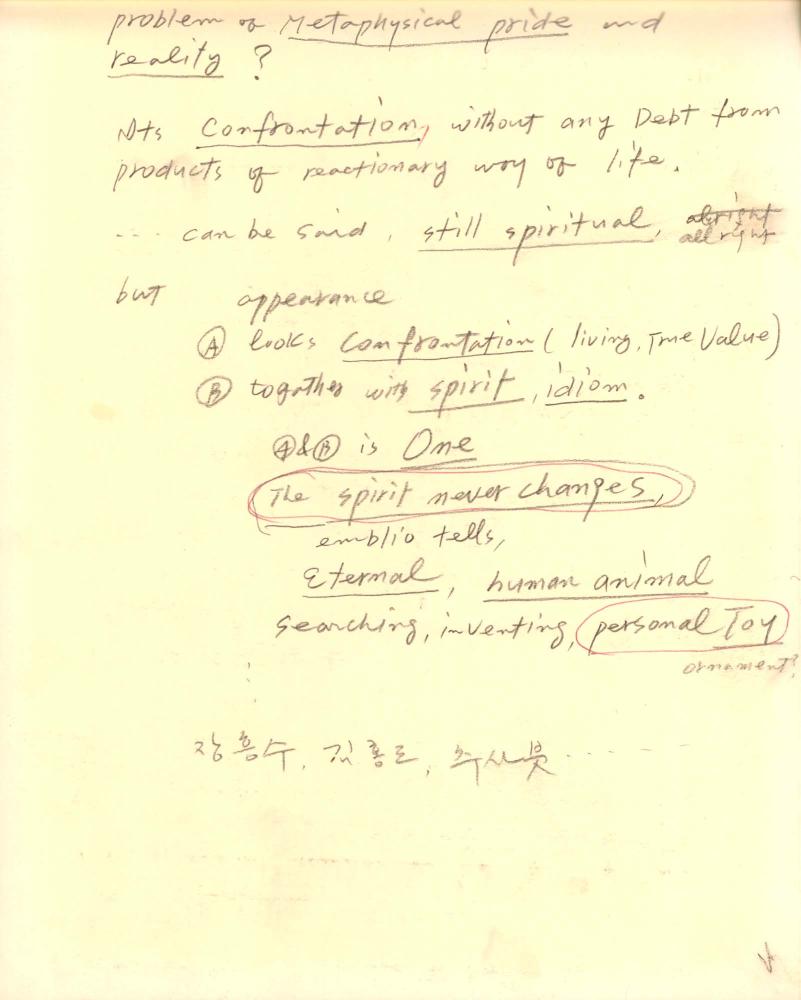 problem of Metaphysical pride and
reality ?
Its Confrontation, without any Debt from
products of reactionary way of life.
... can be said, still spiritual, alright
all right
but appearance
Ⓐ looks Confrontation ( living, True Value)
Ⓑ together with spirit, idiom.
Ⓐ&Ⓑ is One
The spirit never changes,
emblio tells,
Eternal, human animal
searching, inventing, personal Toy
ornament?
장흥수, 김홍도, 추사붓 ......